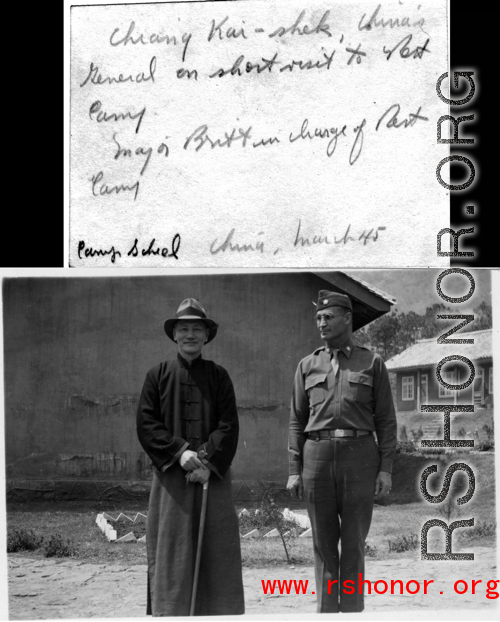 Chiang Kai-shek, China's
General on short visit to Rest
Camp.
Major Britt in charge of Rest
Camp
Camp Schiel China, March 45
RSHONOR.ORG
www.rshonor.org